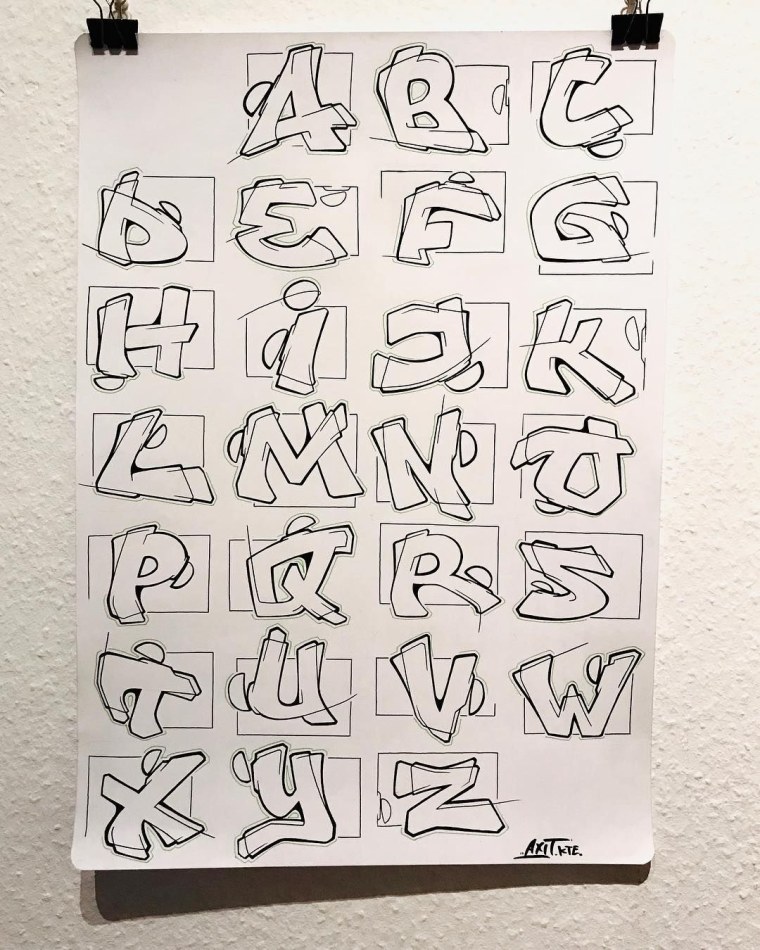 A B C
D E F G
H i J K
L M N O
P Q R S
T U V W
X Y Z
AXIT.KTE.